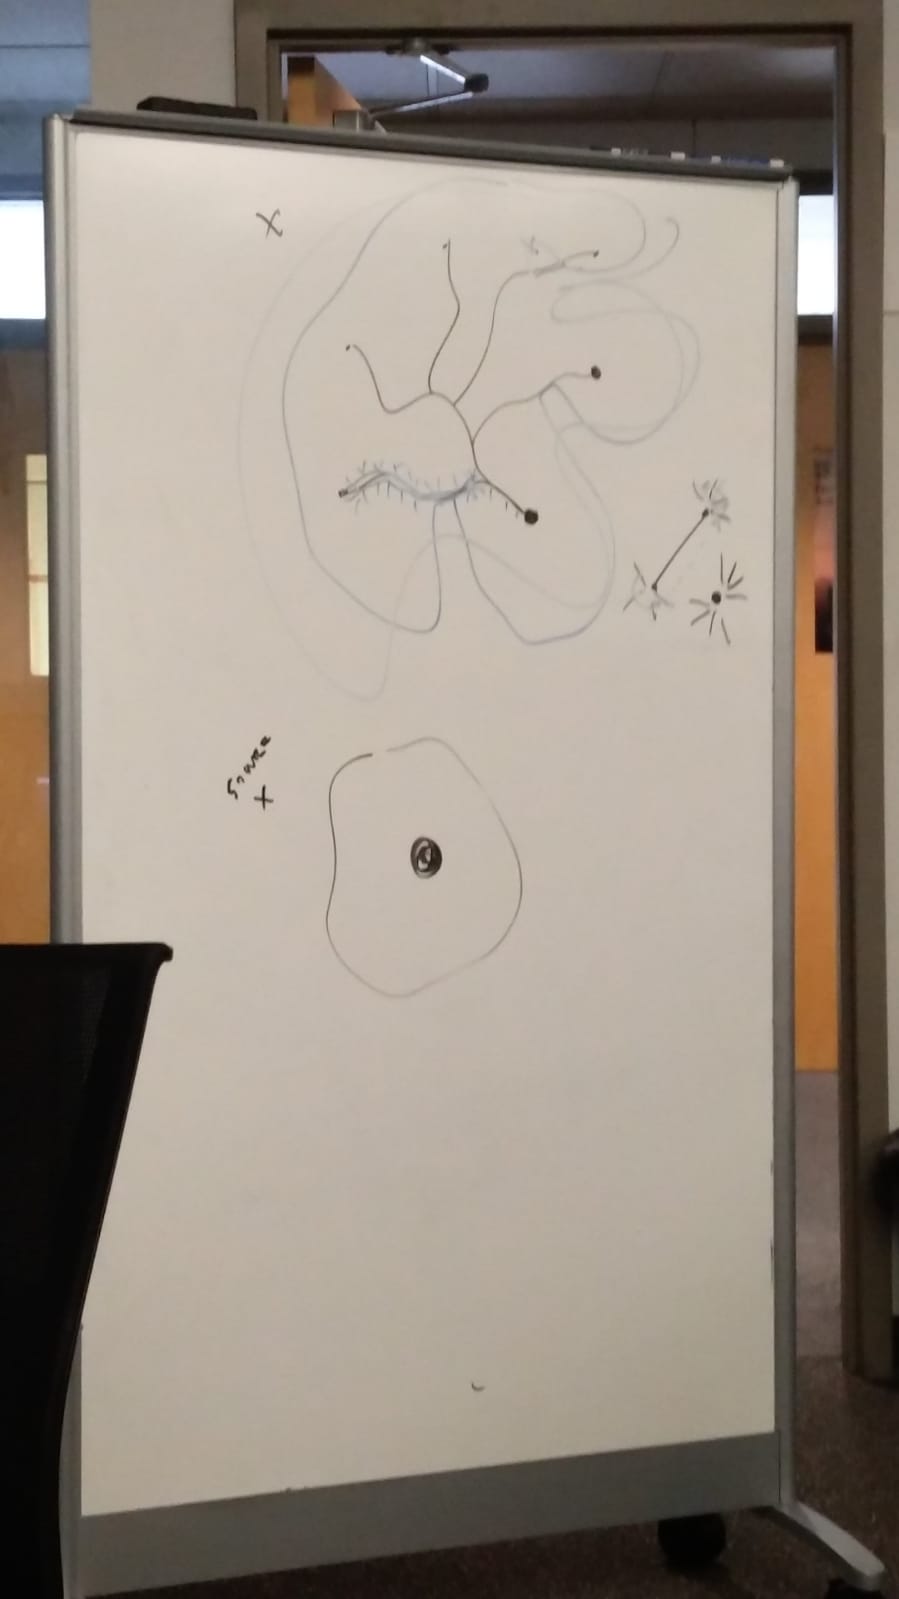 X
Source
X